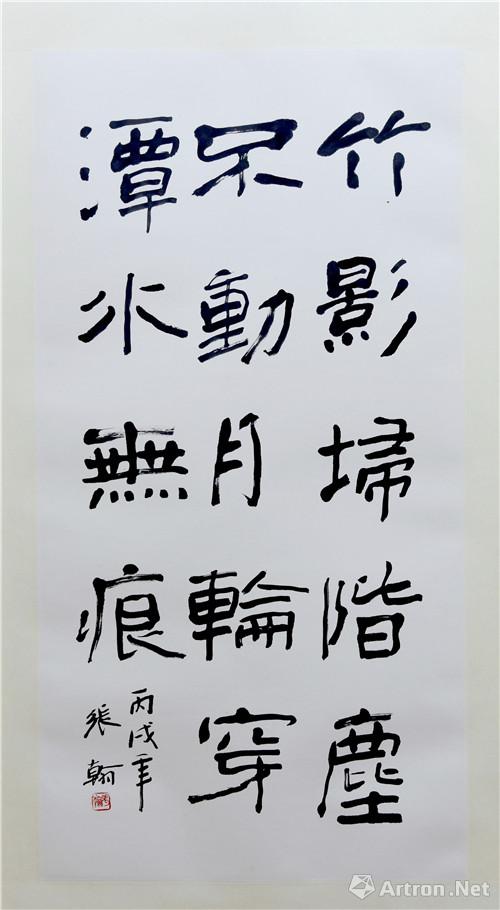 竹影埽階塵
不動月輪穿
潭水無痕
丙戌年
張翰
Artron.Net